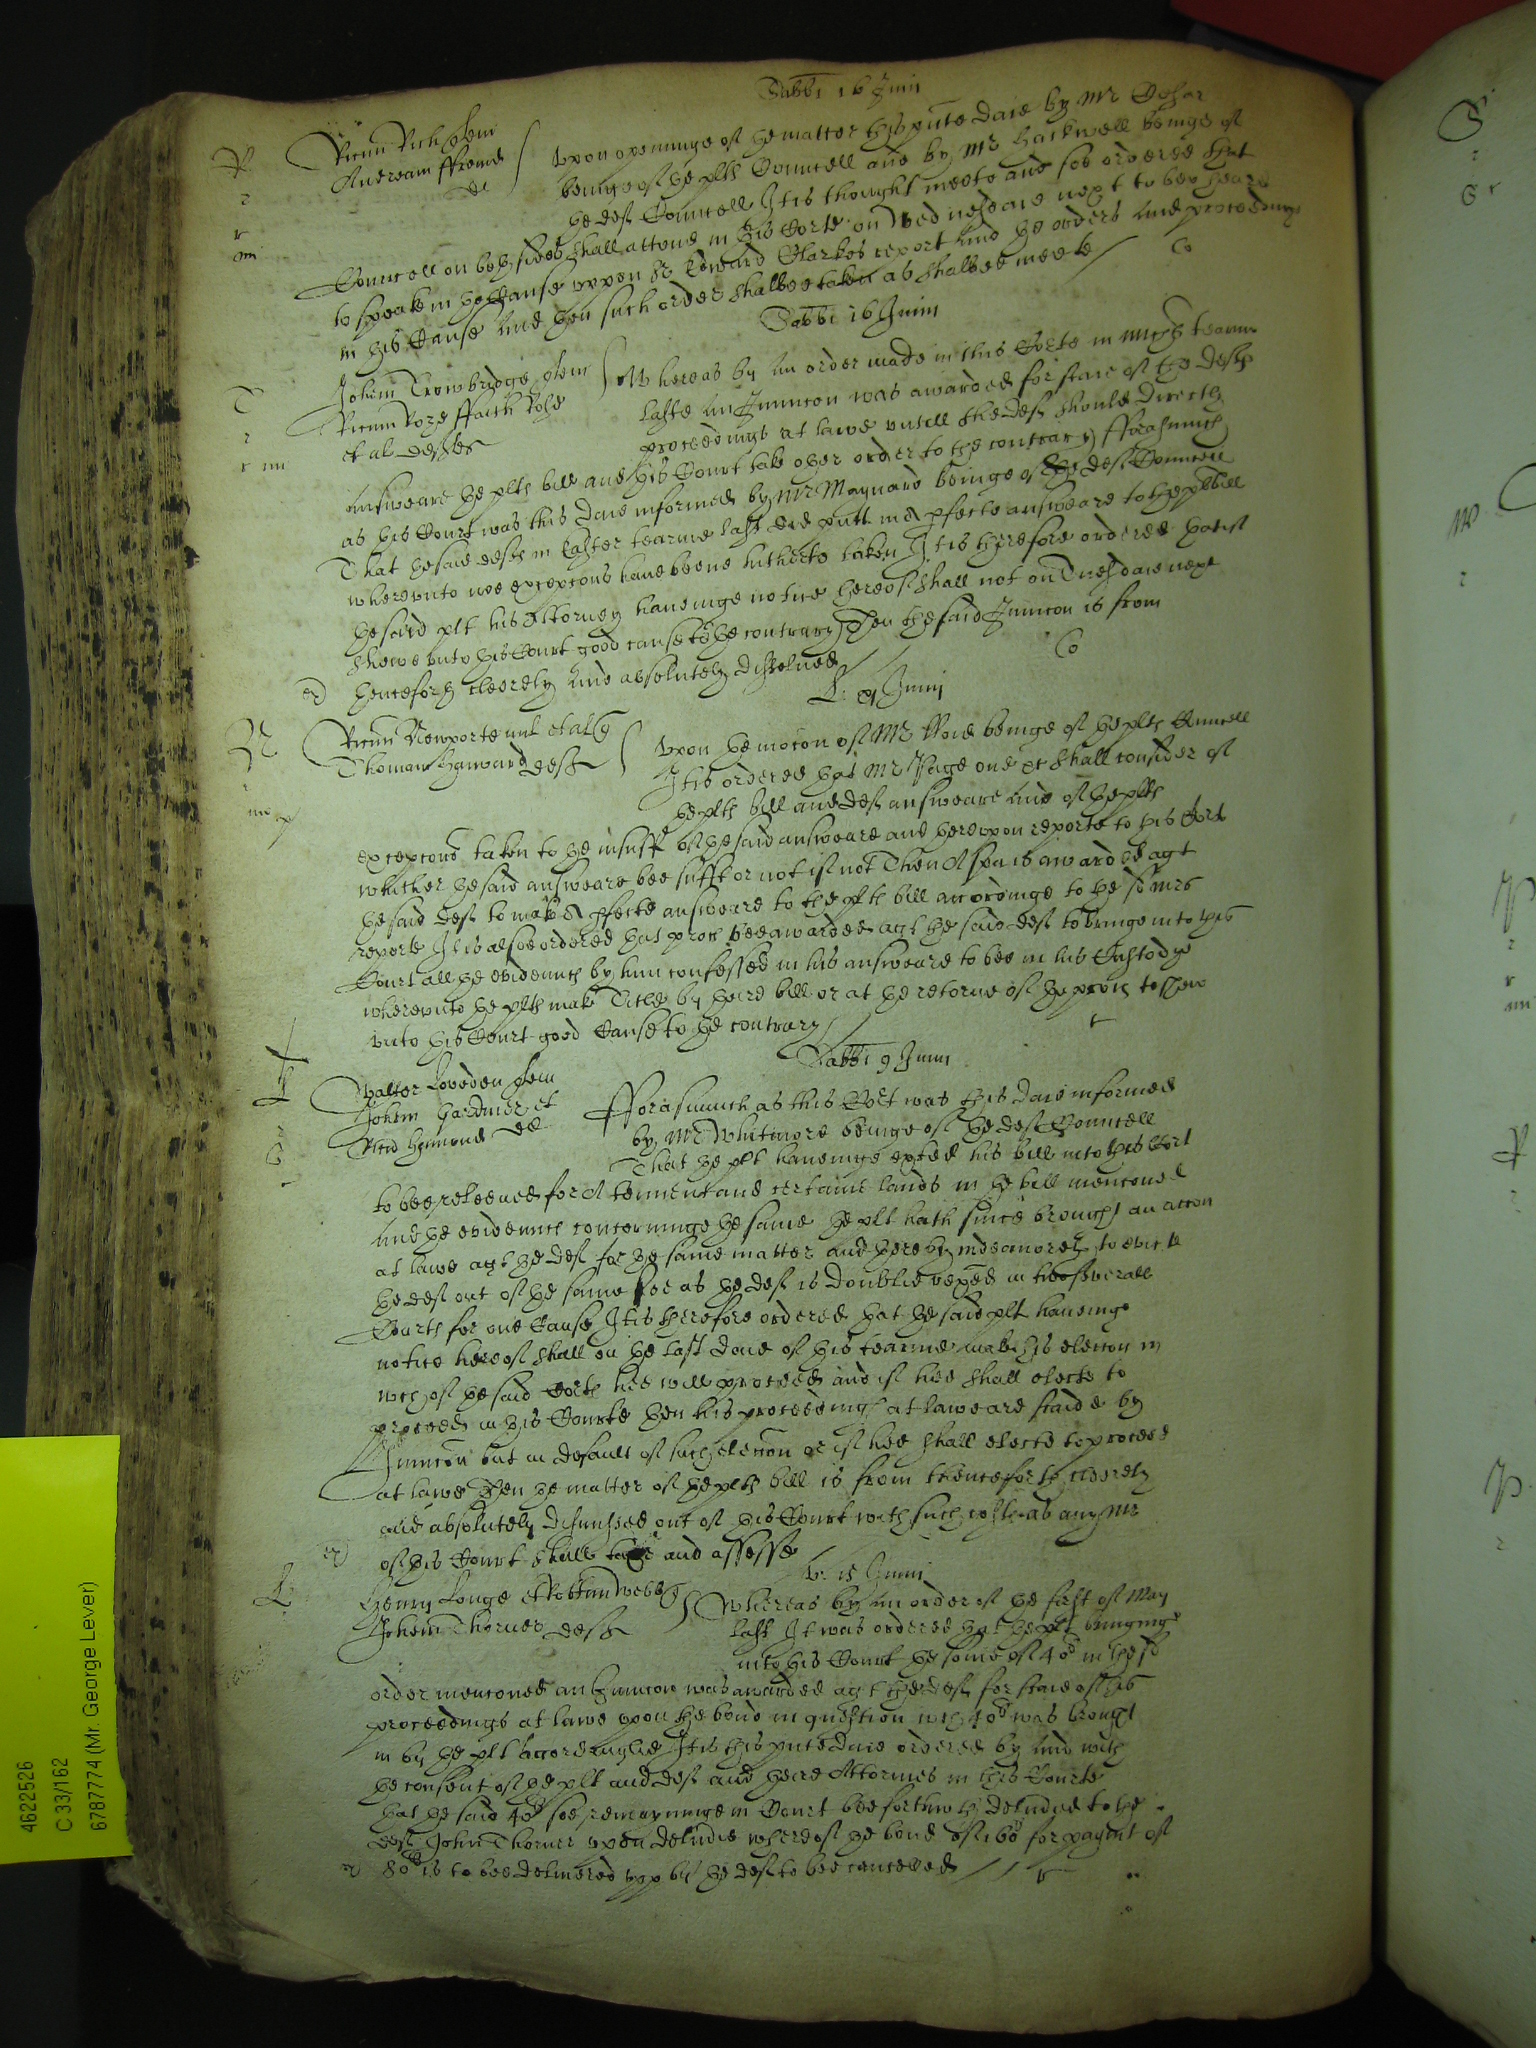 Sabbi 16 Junii
R
Ricum Rich quem
Andream ffreme
de
Upon openinge of the matter this pnte daie by Mr
beinge of the plts Councell and by Mr Hackwell beinge of
the defts Councell It is thought meete and soe ordered that
Councell on both sides shall attend in this Corte on Wednesdaie next to bee heard
to speake in the Cause uppon Sr Edward Clarkes report and the orders and proceedings
in this Cause And then such order shalbee taken as shalbee meete
Co
Sabbi 16 Junii
T
Johem Trowbridge quem
Ricum Roze ffaith Rose
et al deftes
Whereas by an order made in this Corte in Mich tearme
laste an Iniunccon was awarded for staie of the defts
proceedings at lawe untill the deft should directly
answeare the plts bill and this Court take other order to the contrary fforasmuch
as this Court was this daie informed by Mr Maynard beinge of the defts Councell
That the said defts in Easter tearme last did putt in a pfecte answeare to the plts bill
whereunto noe excepcons have beene hitherto taken It is therefore ordered that if
the said plt his Attorney haveinge notice hereof shall not on Tuesdaie next
shewe unto this Court good cause to the contrary Then the said Iniunccon is from
henceforth cleerely and absolutely dissolved
Co
Junii
N
Ricum Newporte mil et al q
Thomam Haward deft
Upon the mocon of Mr beinge of the plts Councell
It is ordered that Mr Page one &c shall consider of
the plts bill and defts answeare and of the plts
excepcons taken to the insuff of the said answeare and thereupon reporte to this Corte
whither the said answeare bee sufft or not if not Then A spa is awarded agt
the said deft to make A pfecte answeare to the plts bill accordinge to the sd Mrs
reporte It is alsoe ordered that proces bee awarded agt the said deft to bringe into this
Court all the evidences by him confessed in his answeare to bee in his Custody
whereunto the plts make Title by theire bill or at the retorne of the proces to shew
unto this Court good Cause to the contrary
Sabbi 9 Junii
L
Walter Loveden quem
Johem Gardiner et
Ricd Hymond de
fforasmuch as this Cort was this daie informed
by Mr Whitmore beinge of the defts Councell
That the plt haveinge exhted his bill into this Cort
to bee releeved for A tenement and certaine lands in the bill menconed
And the evidences concerninge the same the plt hath since brought an accon
at lawe agt the deft for the same matter and thereby indeavoreth to evicte
the deft out of the same soe as the deft is doublie vexed in two severall
Courts for one Cause It is therefore ordered that the said plt haveinge
notice hereof shall on the last daie of this tearme make his eleccon in
wch of the said Corts hee will proceed and if hee shall electe to
proceed in this Courte then his proceedings at lawe are staide by
Iniunccon but in default of such eleccon or if hee shall electe to proceed
at lawe Then the matter of the plts bill is from thenceforth cleerely
and absolutely dismissed out of this Court with such costs as any Mr
of this Court shall taxe and assesse
15 Junii
L
Henry Longe et Robtum Webb q
Johem Thorner deft
Whereas by an order of the first of May
last It was ordered that the plt bringinge
into this Court the some of 40 in the sd
order menconed an Iniunccon was awarded agt the deft for staie of his
proceedings at lawe upon the bond in question wch 40 was brought
in by the plt accordinglie It is this pnte daie ordered by and with
the consent of the plt and deft and theire Attornies in this Courte
that the said 40 soe remayninge in Court bee forthwth delivered to the
deft John Thorner upon deliverie whereof the bond of for paymt of
80 is to bee delivered upp by the deft to bee cancelled
4622526
C 33/162
6787774 (Mr. George Lever)